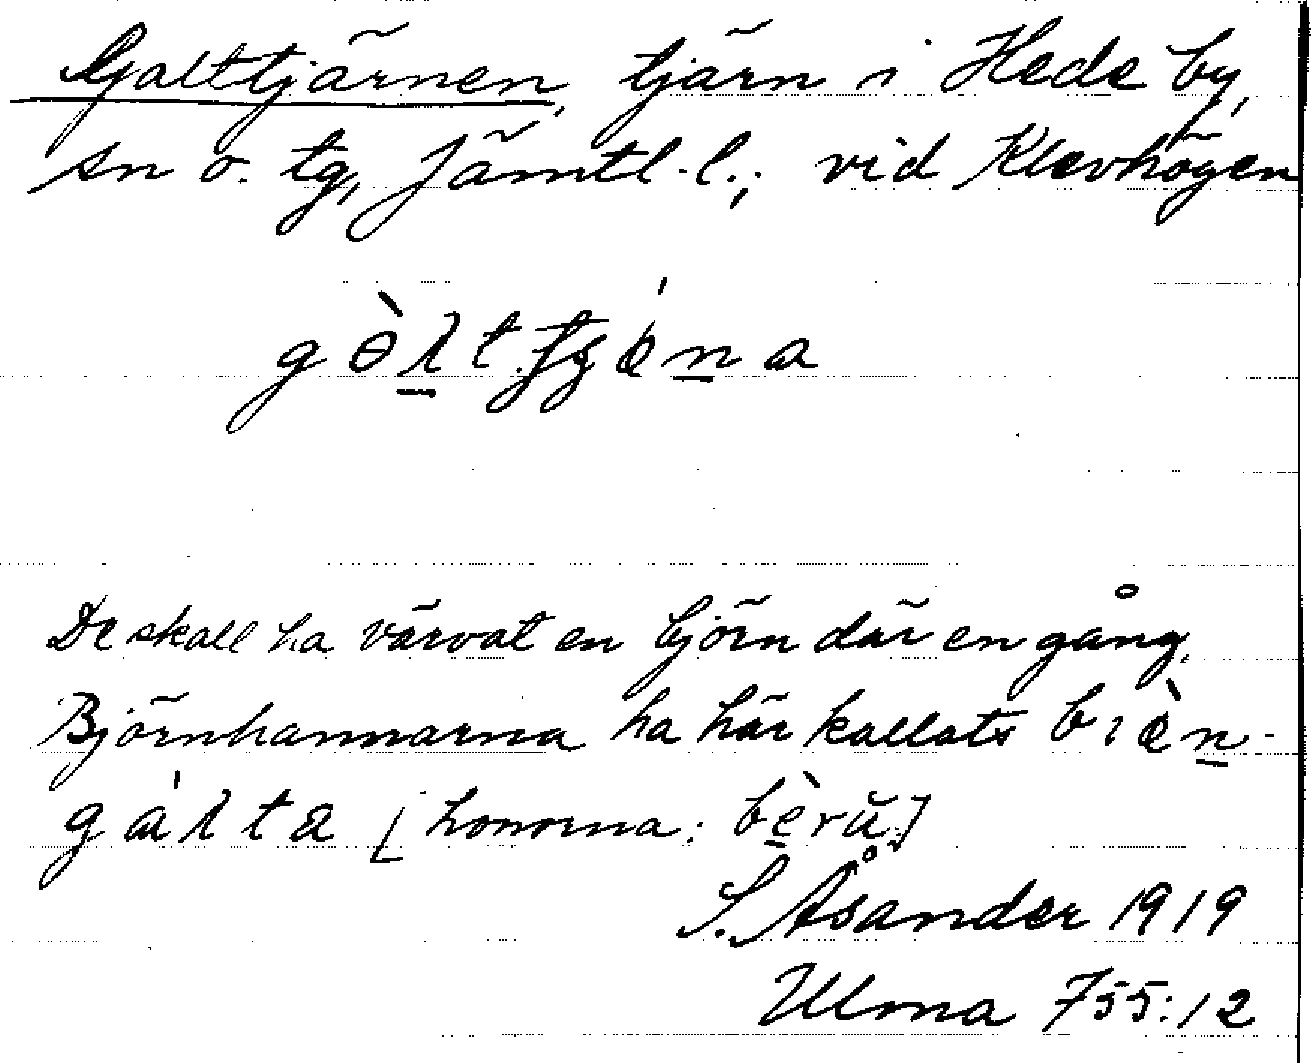 Galttjärnen, tjärn i Hede by,
sn o. tg, Jämtl. l.; vid Klevhögen
De skall ha värvat en björn där en gång.
Björnhannarna ha här kallats biæ̀n-
gálta [honorna: bèrŭ]
S. Åsander 1919
Ulma 755:12